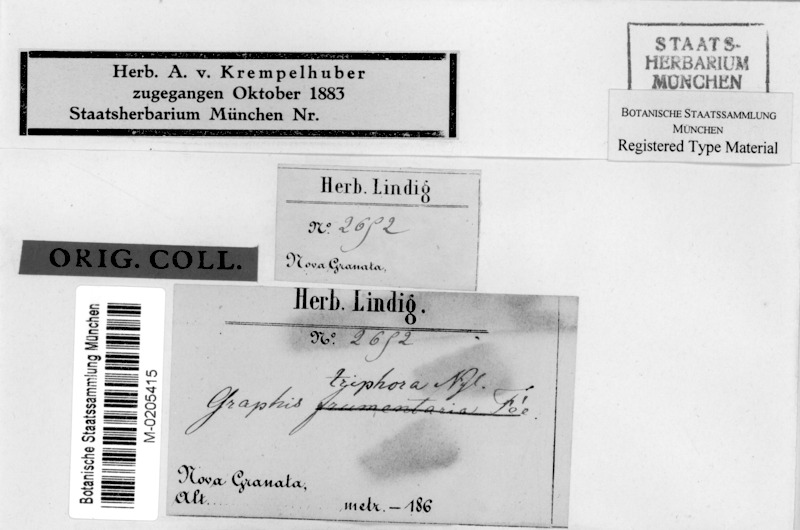 Herb. A. v. Krempelhuber
zugegangen Oktober 1883
Staatsherbarium München Nr.
STAATS-
HERBARIUM
MÜNCHEN
BOTANISCHE STAATSSAMMLUNG
MÜNCHEN
Registered Type Material
Herb. Lindig
No. 2692
Nova Granata,
ORIG. COLL.
Botanische Staatssammlung München
M-0205415
Herb. Lindig.
No. 2692
triphora Nyl.
Graphis frumentaria Fée.
Nova Granata,
Alt. metr. – 186